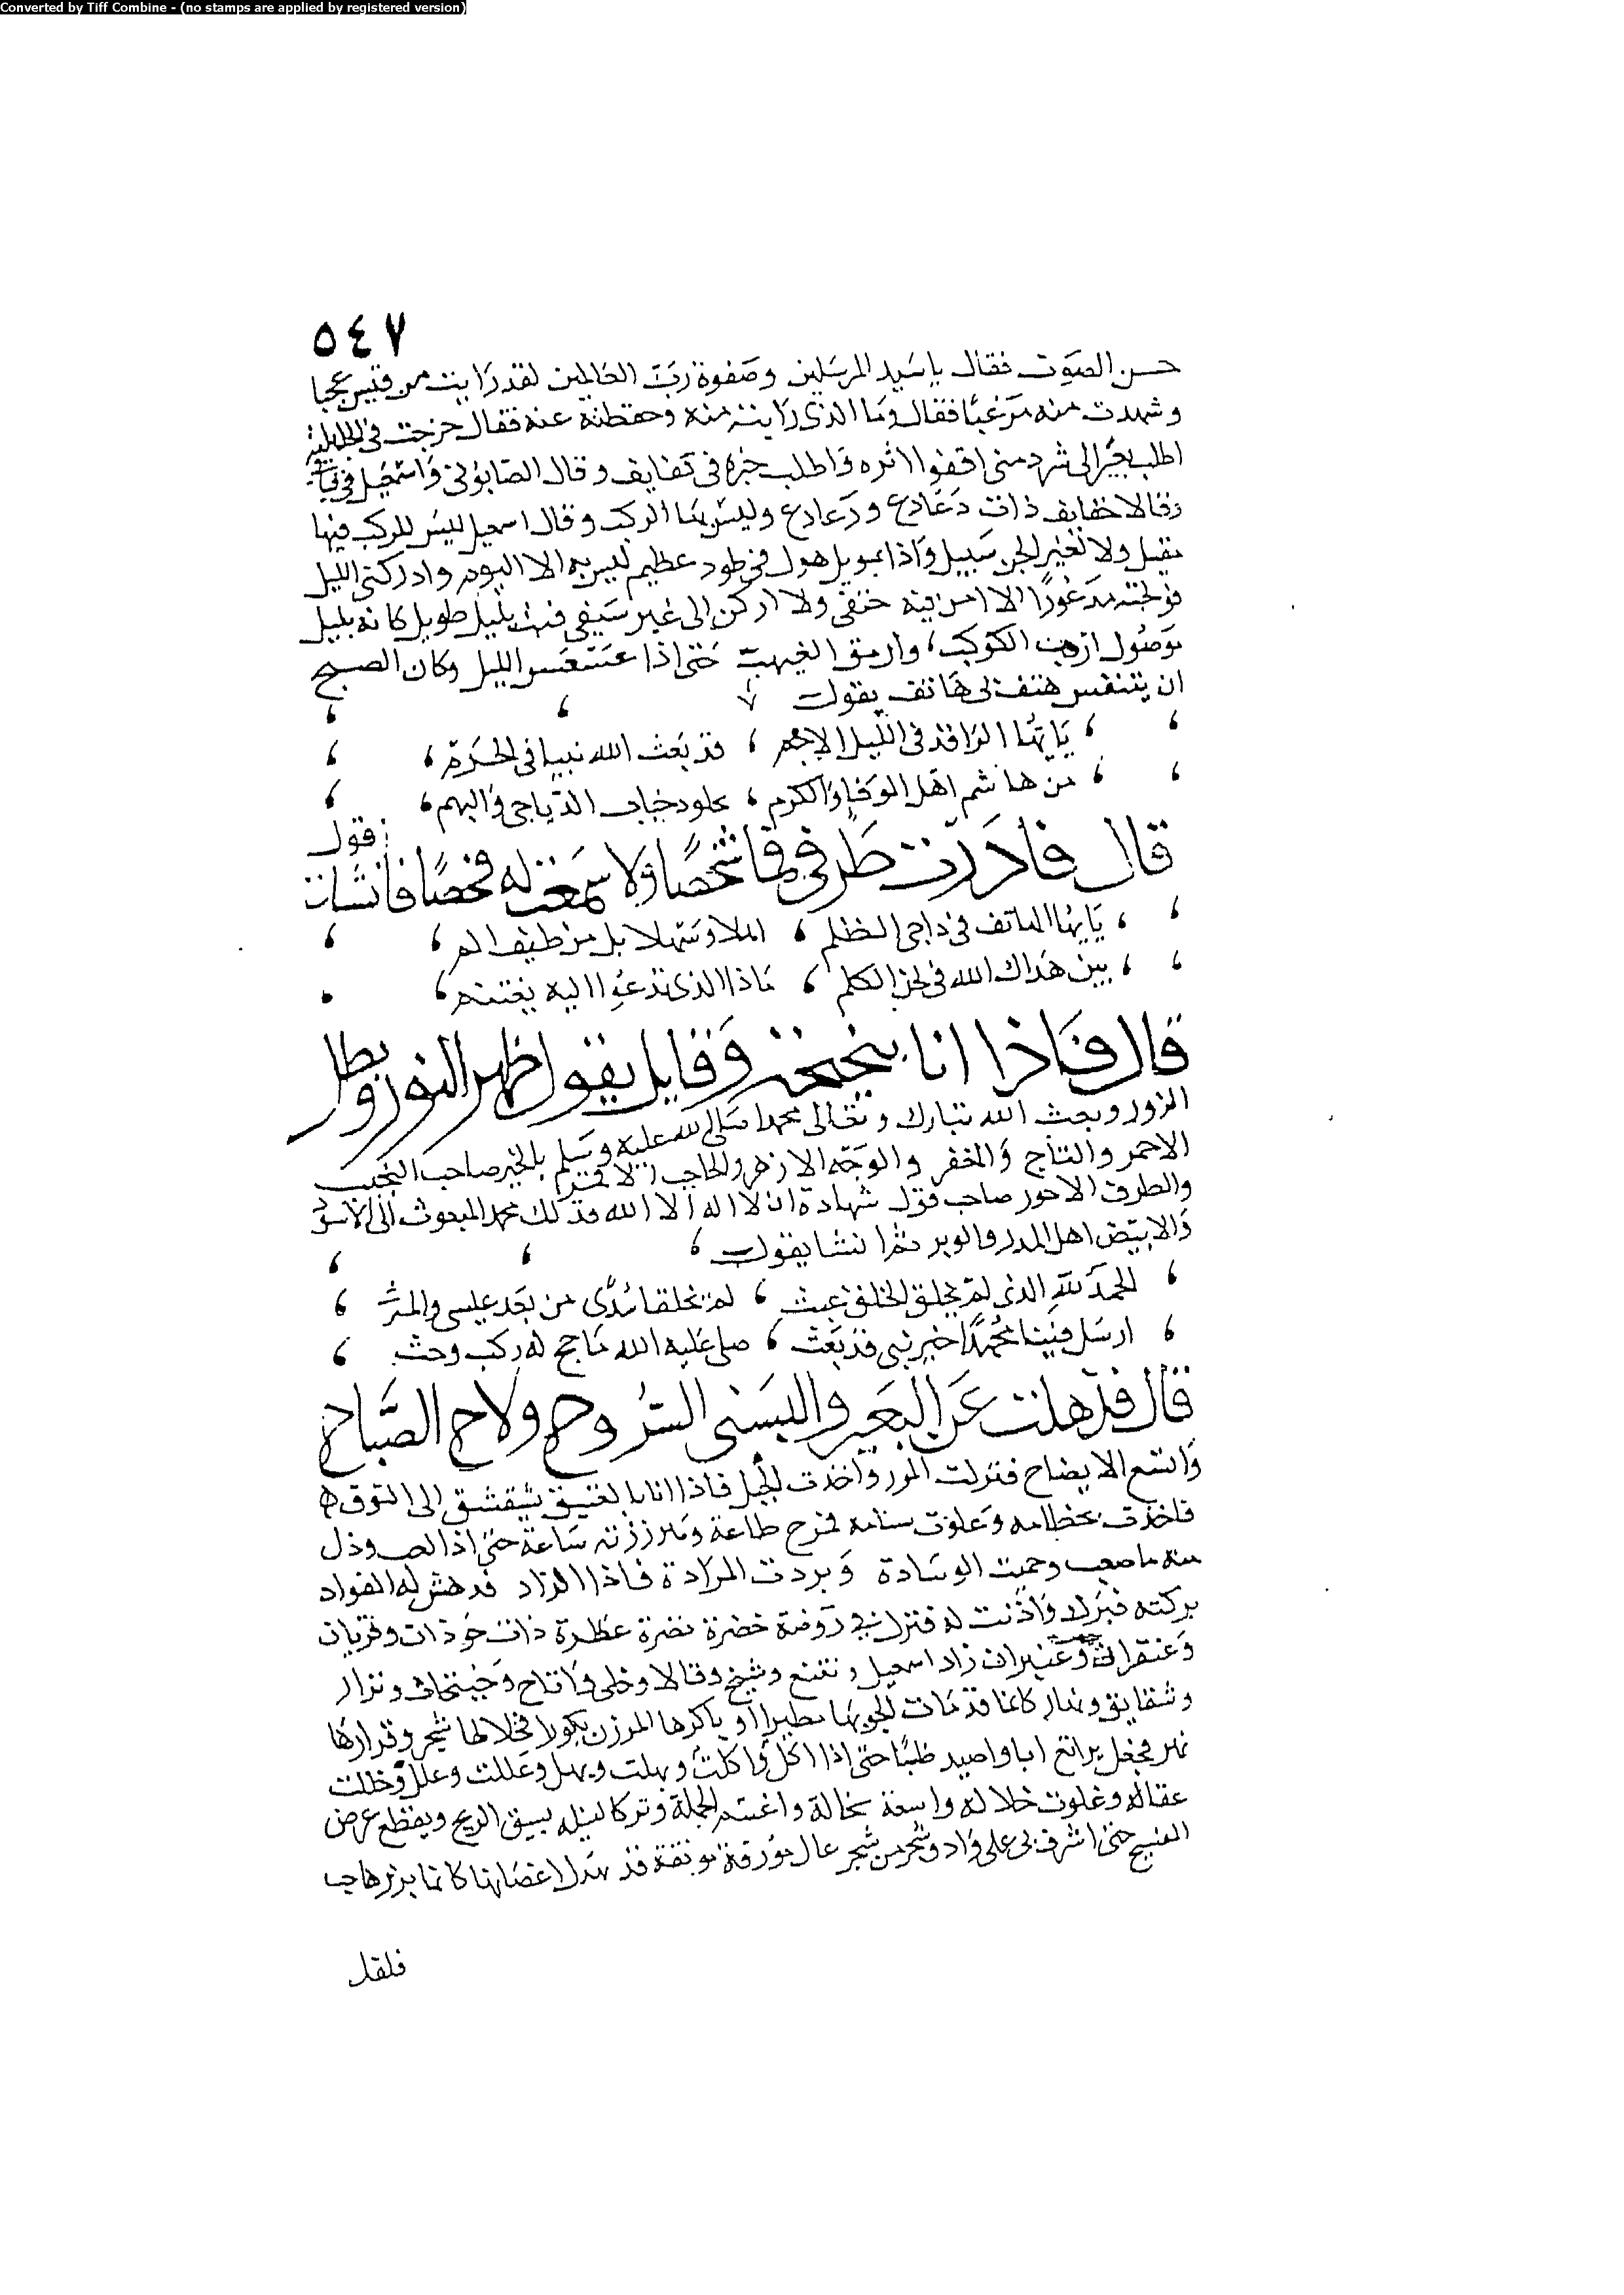 Converted by Tiff Combine - (no stamps are applied by registered version)
٥٤٧
حسن الصوت فقال يا سيد المرسلين وصفوة رب العالمين لقد رايت من قس عجبا
وشهدت منه مرغبا فقال وما الذى رايته منه وحفظته عنه فقال خرجت فى الجاهلية
اطلب بعيرا لى شرد منى اقفوا اثره واطلب خبره فى تنايف وقال الصابونى واسمعيل فى
وقالا حقايف ذات دعادع وزعازع وليس بها الركب وقال اسمعيل ليس للركب فيها
مقيل ولا لغير الجن سبيل واذا بمويل هول فى طود عظيم ليس به الا البوم وادركنى الليل
فولجته مذعورا لا امن فيه حتفى ولا اركن الى غير سيفى فبت بليل طويل كانه بليل
موصول ارقب الكوكب وارمق الغيهب حتى اذا عسعس الليل وكان الصبح
ان يتنفس هتف بى هاتف يقول
يايها الراقد فى الليل الاحم ، قد بعث الله نبيا فى الحرم
من هاشم اهل الوفا والكرم ، يجلو دجنات الدياجى والبهم
قال فادرت طرفى فما شخصا ولا سمعت له فحصا فانشات
قول
يايها الهاتف فى داجى الظلم ، اهلا وسهلا بك من طيف الم
بين هداك الله فى لحن الكلم ، ماذا الذى تدعوا اليه يغتنم
قال فاذا انا بنحنحة وقايل يقول ظهر النور وبطل
الزور وبعث الله تبارك وتعالى محمدا صلى الله عليه وسلم بالخير صاحب النجيب
الاحمر والتاج والمغفر والوجه الازهر والحاجب الاقمر
والطرف الاحور صاحب قول شهادة ان لا اله الا الله فذلك محمد المبعوث الى الاسود
والابيض اهل المدر والوبر ثم انشا يقول
الحمد لله الذى لم يخلق الخلق عبث ، لم يخلقنا سدى من بعد عيسى واكترث
ارسل فينا محمدا خير نبى قد بعث ، صلى عليه الله ما حج له ركب وحث
قال فذهلت عن البعير والبسنى السروح ولاح الصباح
واتسع الايضاح فتركت المور واخذت الجبل فاذا انا بالفنيق يشقشق الى النوق
فاخذت بخطامه وعلوت سنامه فمرح طاعة وهززته ساعة حتى اذا لعب وذل
منه ما صعب وحميت الوسادة وبردت المزادة فاذا الزاد قد هش له الفواد
بركته فبرك واذنت له فترك فى روضة خضرة نضرة عطرة ذات حوذان وقربان
وعنقران وعبيثران زاد اسمعيل ونعنع وشيح وقالا وحلى واقاح وجثجاث ونزار
وشقايق ونهار كانما قد بات الجو بها مطيرا او باكرها المزن بكورا فخلالها شجر وقرارها
نهر فجعل يرتع ابا واصيد ضبا حتى اذا اكل واكلت ونهلت ونهل وعللت وعل وحللت
عقاله وعلوت جلاله واسعة مجاله واغتنم الحملة ومر كالنبلة يسبق الريح ويقطع عرض
الفسيح حتى اشرف بى على واد وشجر من شجر عاد مورقة مونقة قد تهدل اغصانها كانما بريرها حب
فلفل